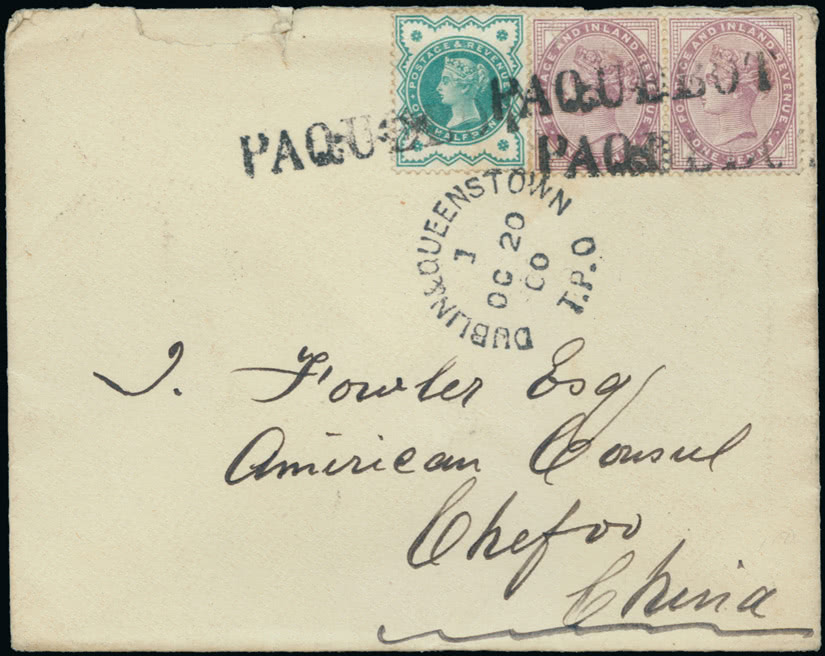 POSTAGE & REVENUE
HALFPENNY
POSTAGE AND INLAND REVENUE
ONE PENNY
POSTAGE AND INLAND REVENUE
ONE PENNY
PAQUEBOT
PAQUE
PAQUEBOT
DUBLIN & QUEENSTOWN
T.P.O
1
OC 20
00
J. Fowler Esq
American Consul
Chefoo
China